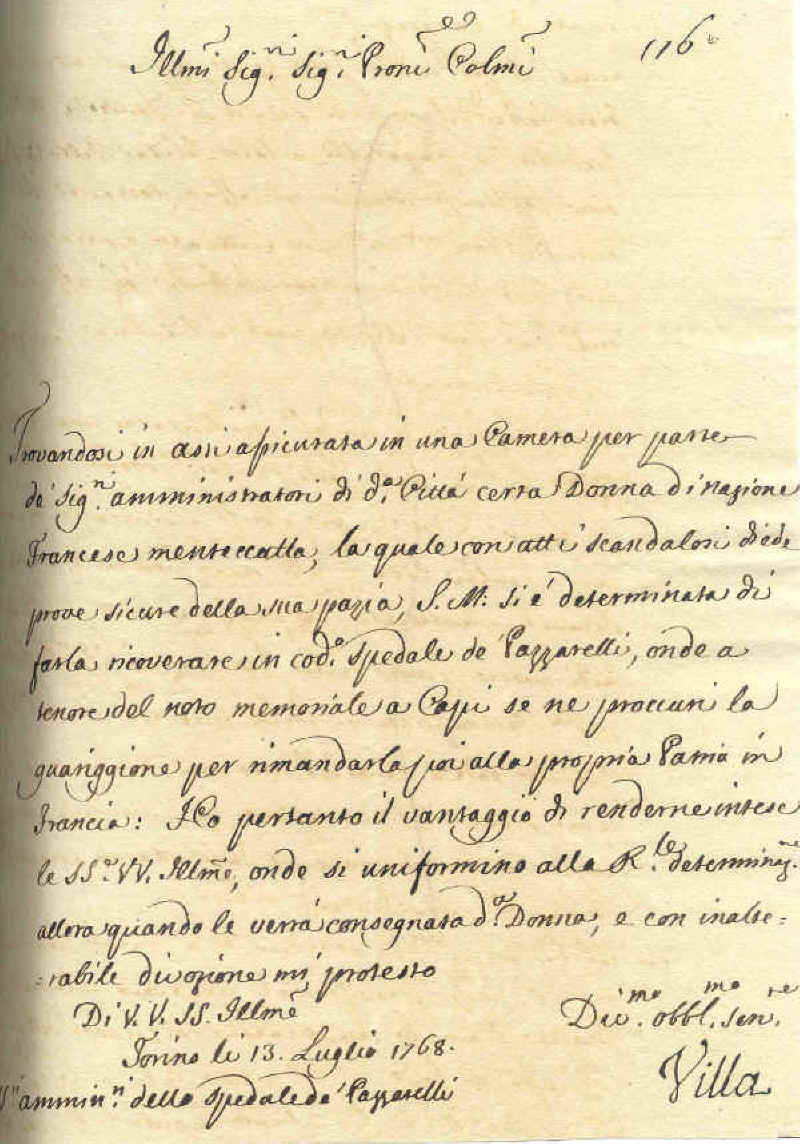 Illmi Sig.ni Sig.ni Proni Colmi
116
Trovandosi in Asti assicurata in una Camera per parte
de' Sig.ri amministratori di d.a Città certa Donna di nazione
Francese mentecatta, la quale con atti scandalosi diede
prove sicure della sua pazzia, S. M. si è determinata di
farla ricoverare in cod.o spedale de' Pazzarelli, onde a
tenore del noto memoriale a Capi se ne proccuri la
guariggione per rimandarla poi alla propria Patria in
Francia: Ho pertanto il vantaggio di renderne intese
le SS.e VV. Illme, onde si uniformino alla R.le determinaz.ne
allora quando le verrà consegnata d.a Donna, e con inalte=
=rabile divozione mi protesto
Di V. V. SS. Illme
Div.mo obbl.mo sen.re
Torino li 13. Luglio 1768.
Villa
ammin.ri dello spedale de' Pazzarelli